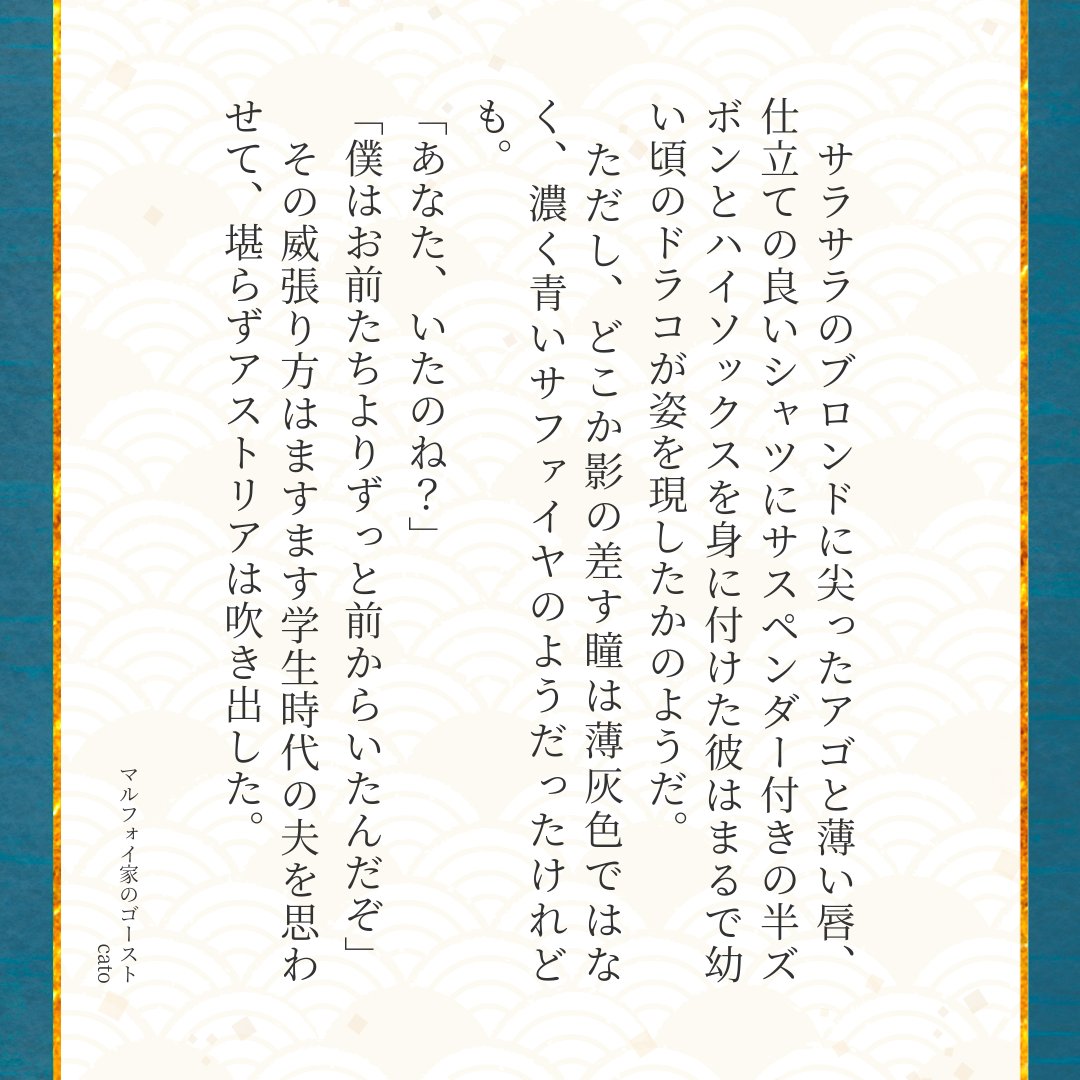 サラサラのブロンドに尖ったアゴと薄い唇、
仕立ての良いシャツにサスペンダー付きの半ズ
ボンとハイソックスを身に付けた彼はまるで幼
い頃のドラコが姿を現したかのようだ。
ただし、どこか影の差す瞳は薄灰色ではな
く、濃く青いサファイヤのようだったけれど
も。
「あなた、いたのね？」
「僕はお前たちよりずっと前からいたんだぞ」
その威張り方はますます学生時代の夫を思わ
せて、堪らずアストリアは吹き出した。
マルフォイ家のゴースト
cato